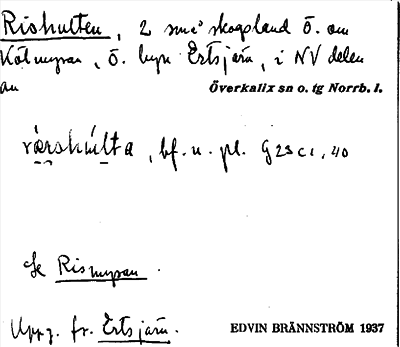 Rishulten, 2 små skogsland Ö. om
Kölmyran, Ö. byn Ertsjärn, i NV delen
av Överkalix sn o. tg Norrb. l.
bf. u. pl. G23c1, 40
Se Rismyran.
Uppg. fr. Ertsjärn.
EDVIN BRÄNNSTRÖM 1937